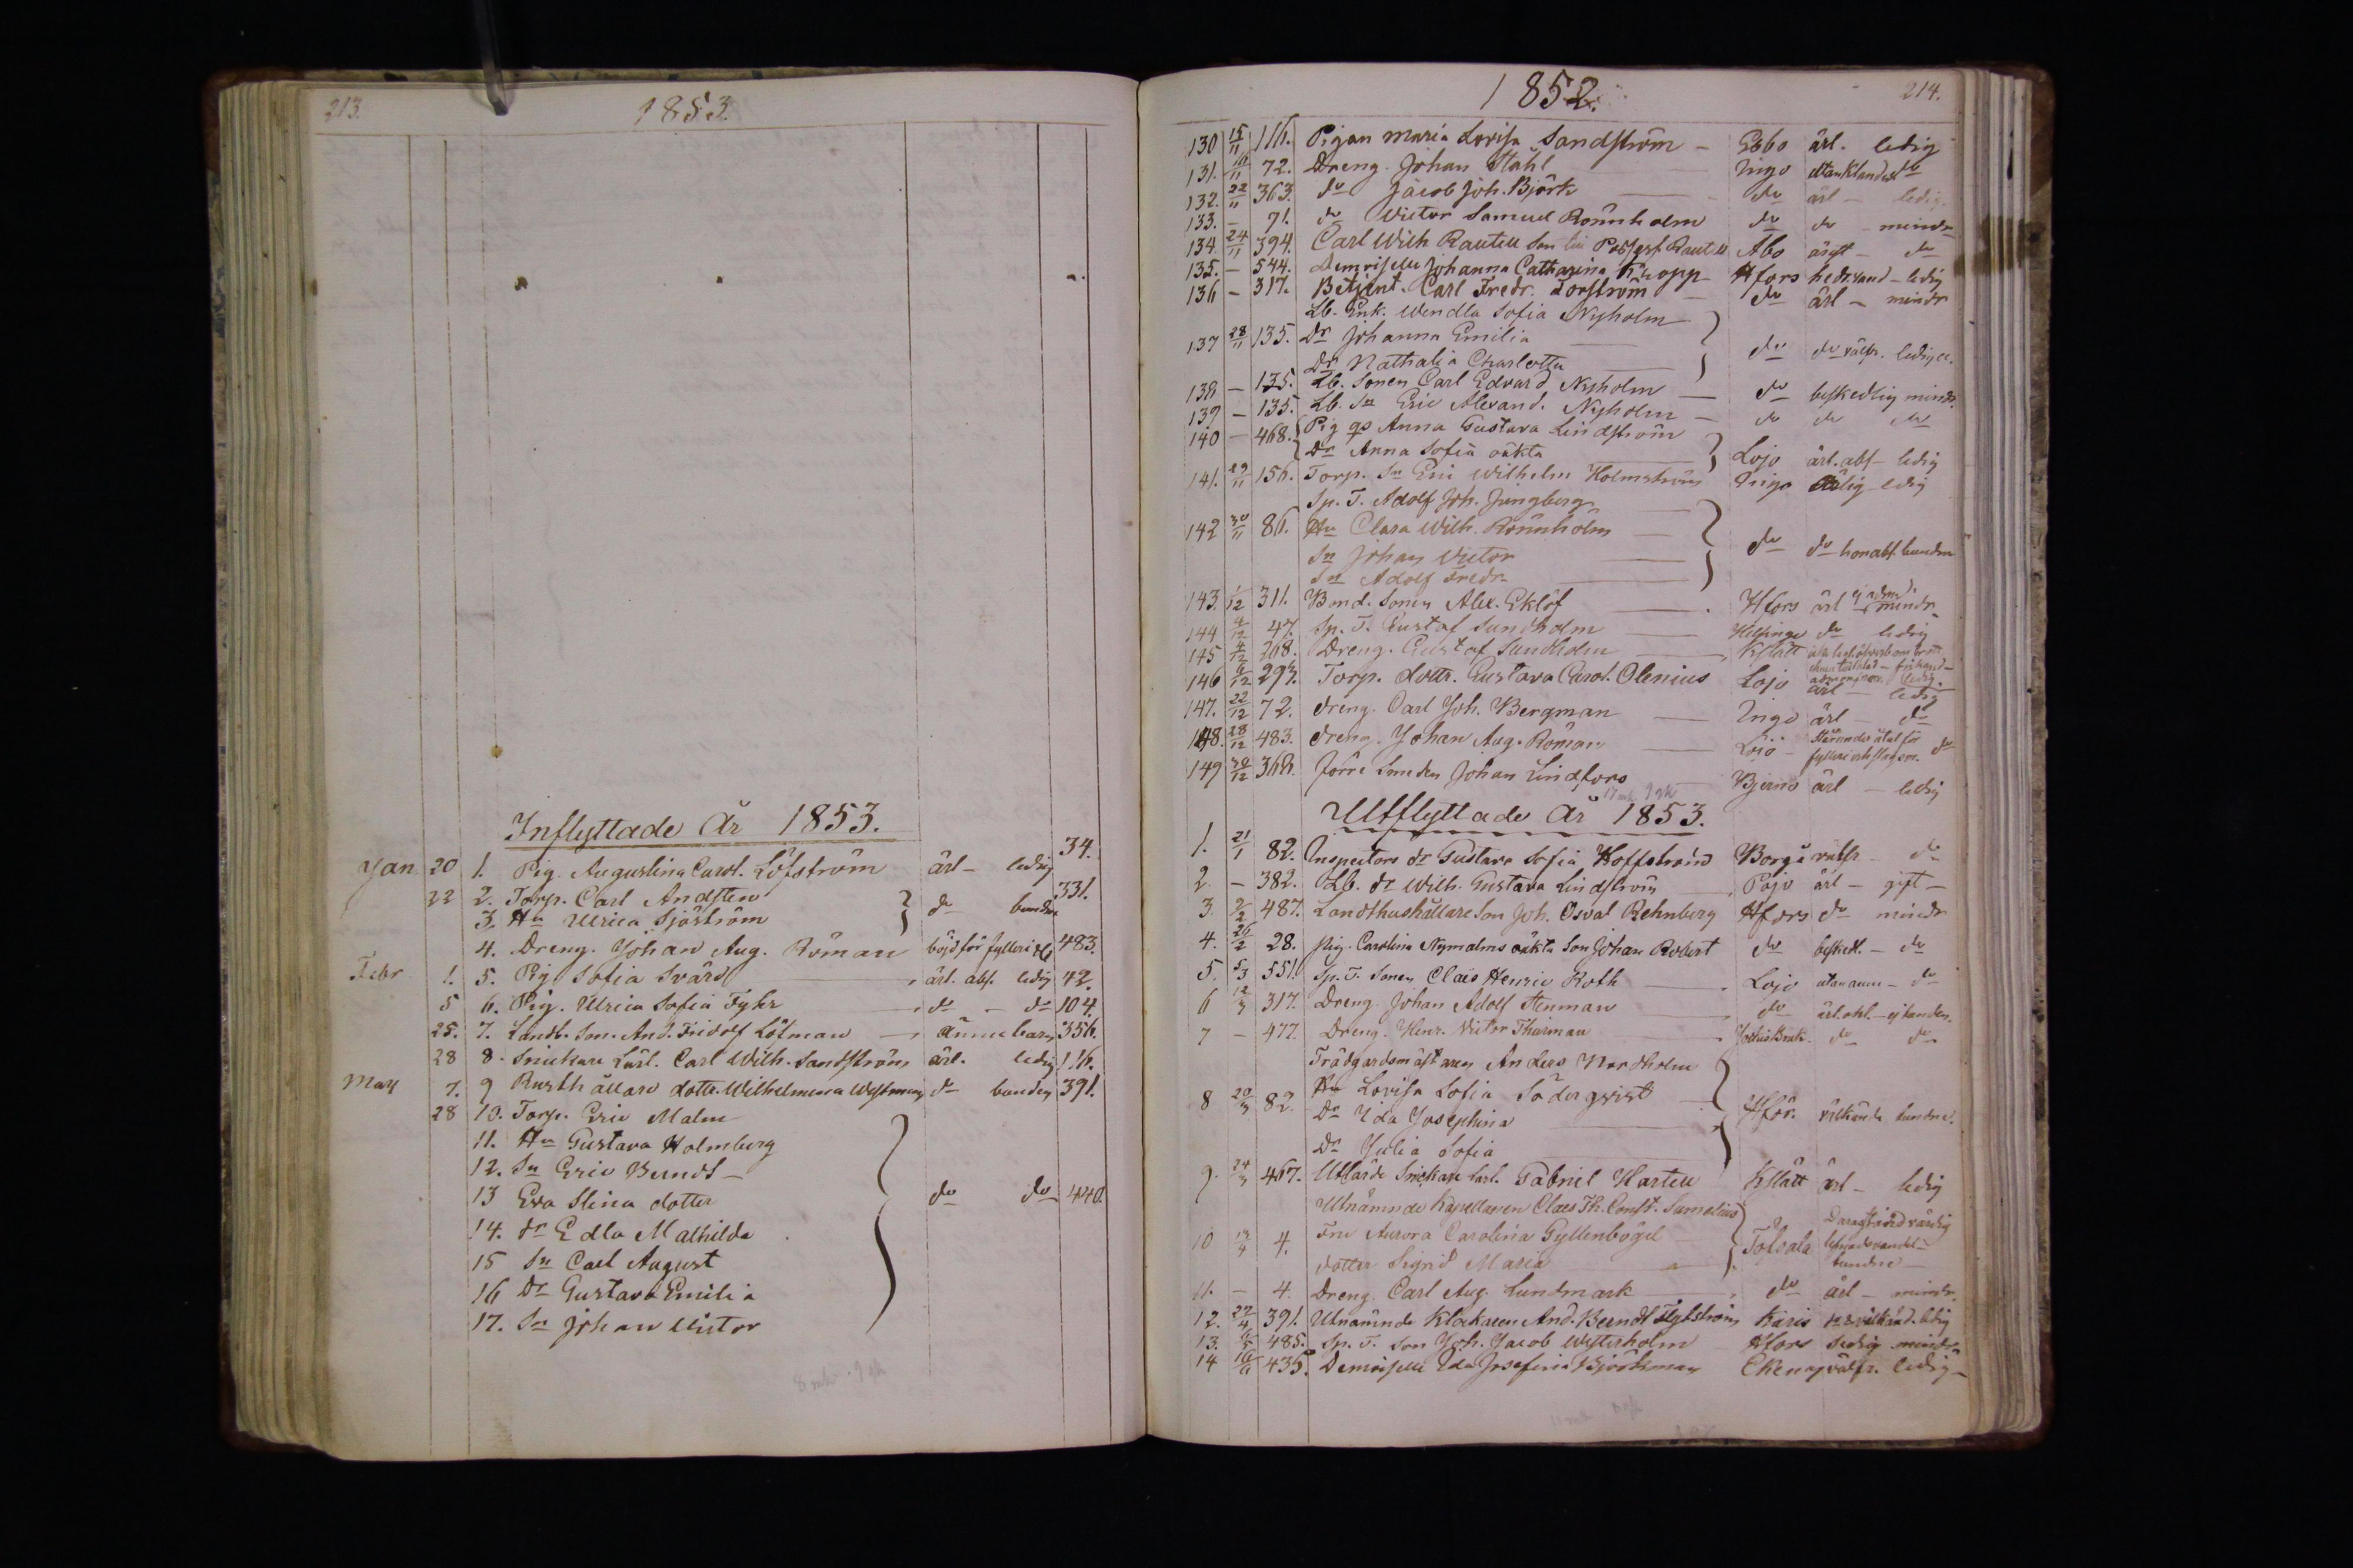 213.
1853.
Inflyttade År 1853.
Jan 20 1. Pig. Augustina Carol. Löfström ärl – ledig 34.
22 2. Torp. Carl Andsten
3. Hu Ulrica Sjöström do bundne 331.
4. Dreng. Johan Aug. Röman böjd för fylleri 483.
Febr 1. 5. Pig Sofia Svärd ärl. abs. ledig 42.
5 6. Pig. Ulrica Sofia Fyhr do – do 104.
25. 7. Landb. Son. And. Fridolf Löfman ännu barn 356.
28 8. Snickare Lärl. Carl Wilh. Sandström ärl. ledig 116.
Mars 7. 9 Rusthållare dottr. Wilhelmina Westman do bunden 391.
28 10. Torp. Eric Malm
11. Hu Gustava Holmberg
12. Sn Eric Berndt –
13 Eva Stina dotter do do 440.
14. dr Edla Mathilda
15 Sn Carl August
16 Dr Gustava Emilia
17. Sn Johan Victor
1852.
214.
130 15/11 116. Pigan Maria Lovisa Sandström – Esbo ärl. ledig
131. 16/11 72. Dreng. Johan Ståhl Ingo do
132. 22/11 363. do Jacob Joh. Björk do ärl – ledig
133. – 71. do Victor Samuel Rönnholm do do – mindr
134 24/11 394. Carl Wilh Rautell Son Rautell Åbo do
135. – 544. Demoiselle Johanna Catharina Knopp Hfors ledig
136 – 317. Betjent. Carl Fredr. Torström do ärl – mindr
Lb. Enk. Wendla Sofia Nyholm
137 28/11 135. Dr Johanna Emilia do do välfr. ledig
Dr Nathalia Charlotta
138 – 135. Lb. Sonen Carl Edvard Nyholm do beskedlig mindr
139 – 135. Lb. Sn Eric Alexand. Nyholm – do do do
140 – 468. Pig Anna Gustava Lindström
Dr Anna Sofia oäkta Lojo ärl. abs – ledig
141. 29/11 156. Torp. Sn Eric Wilhelm Holmström Ingo ärlig ledig
Sp. T. Adolf Joh. Jungberg
142 30/11 86. Hu Clara Wilh. Rönnholm
Sn Johan Victor do do bundne
Sn Adolf Fredr.
143. 1/12 311. Bond. Sonen Alex. Eklöf Hfors ärl mindr
144 4/12 47. Sp. T. Gustaf Sundholm Helsinge do ledig
145 4/12 268. Dreng. Gustaf Sundholm Kslätt
146 6/12 297. Torp. dottr. Gustava Carol. Olenius Lojo ärl – ledig
147. 22/12 72. Dreng. Carl Joh. Bergman Ingo ärl do
148. 28/12 483. Dreng. Johan Aug. Röman Lojo do
149 30/12 368. Förre Smeden Johan Lindfors Bjerno ärl – ledig
Utflyttade År 1853.
1. 21/1 82. Inspectors dr Gustava Sofia Hoffström Borgå välfr do
2. – 382. Lb. dr Wilh. Gustava Lindström Pojo ärl – gift –
3. 2/2 487. Landthushållare Son Joh. Osvat Rehnberg Hfors do mindr
4. 26/2 28. Pig. Carolina Nymalms oäkta Son Johan Robert do beskedl. – do
5. 5/3 551. Sp. T. Sonen Claes Henric Roth Lojo utan anm – do
6 12/3 317. Dreng. Johan Adolf Stenman do
7 – 477. Dreng. Henr. Victor Thurman do do
Trädgårdsmästaren Anders Nordholm
8 20/3 82. Hu Lovisa Sofia Söderqvist
Dr Ida Josephina Hfors. välkände bundne.
Dr Julia Sofia
9. 24/3 467. Utlärde Snickare Lärl. Gabriel Hartell Kslätt ärl – ledig
Utnämnde Kapellanen Claes Th. Const. Samelius
10 4. Fru Aurora Carolina Gyllenbögel Tofsala
dotter Sigrid Maria bundne –
11. – 4. Dreng. Carl Aug. Lundmark do ärl – mindr.
12. 27/4 391. Utnämnde Klockaren And. Berndt Karis ledig
13. 6/5 485. Sp. T. Son Joh. Jacob Westerholm Hfors Sedig mindr
14 435. Demoiselle Ida Josefina Björkman Ekenäs välfr. ledig –